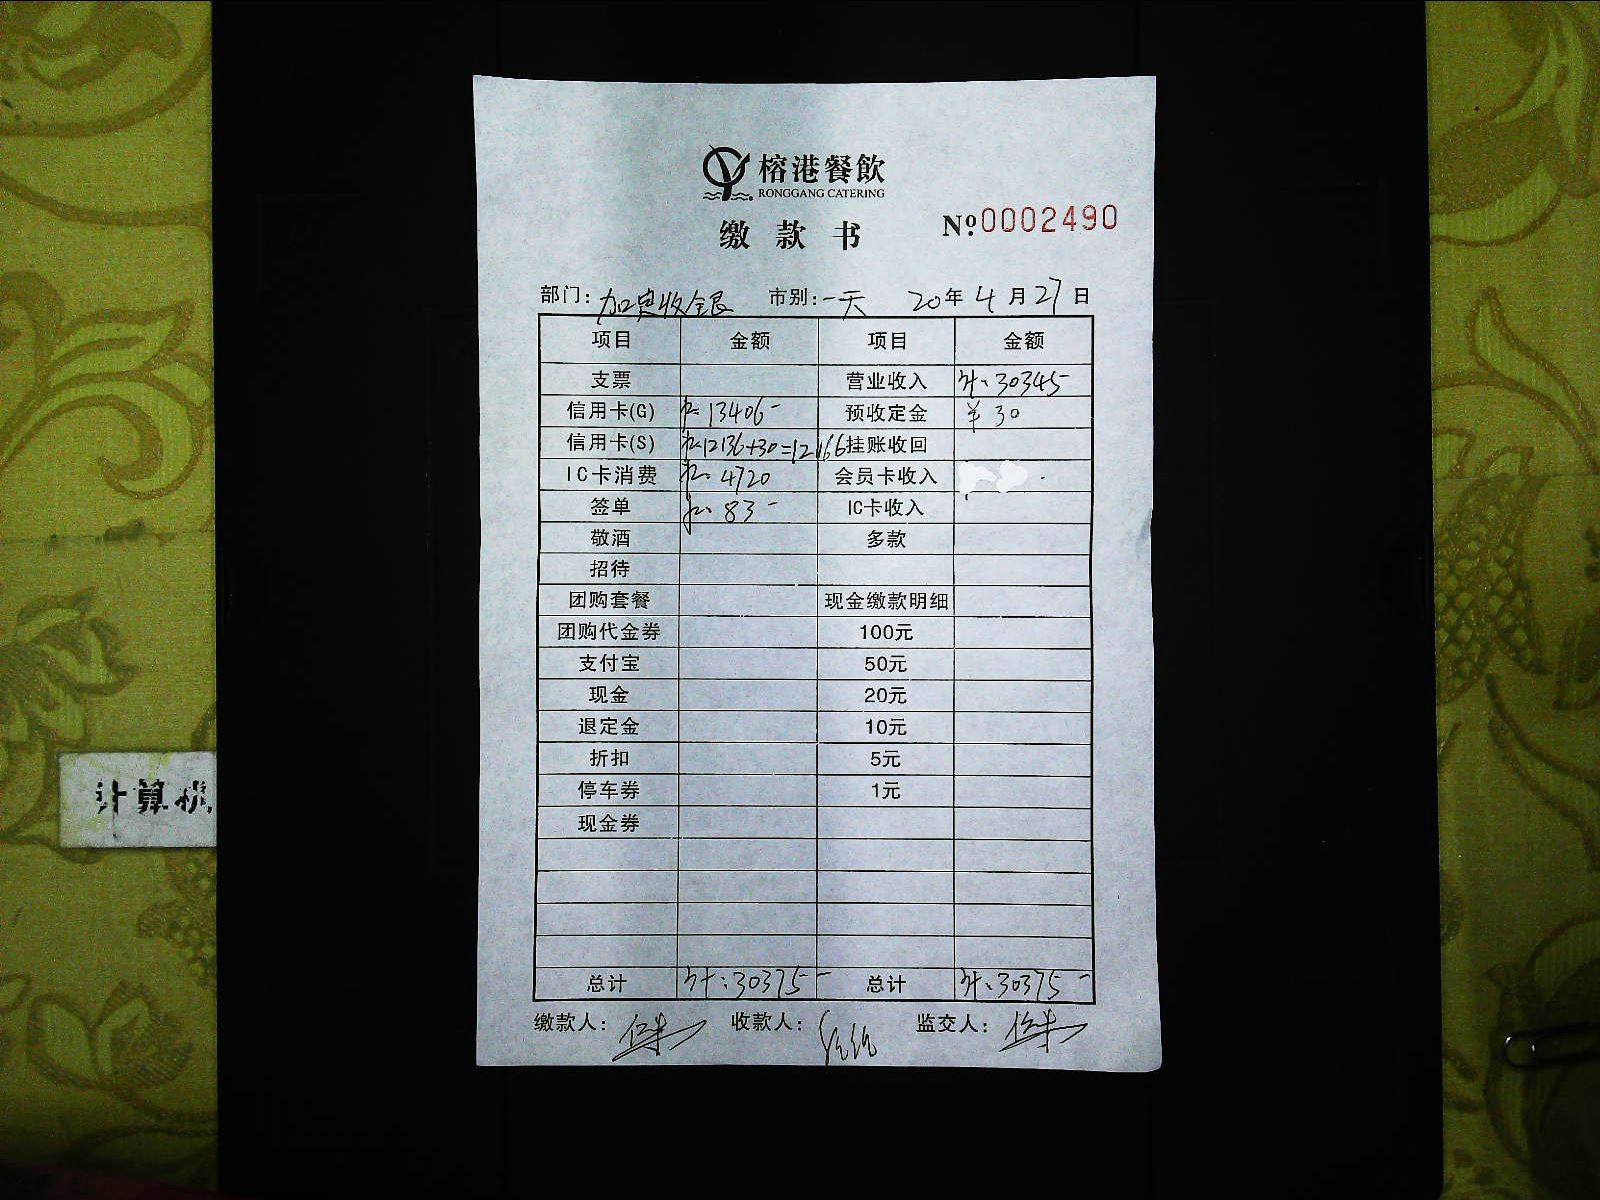 榕港餐飲
RONGGANG CATERING
缴款书
Nº0002490
部门: 收银 市别: 一天 20年4月27日
项目 金额 项目 金额
支票 营业收入 30345
信用卡(G) 13406- 预收定金 ¥30
信用卡(S) 12136+30=12166 挂账收回
IC卡消费 4720 会员卡收入
签单 83- IC卡收入
敬酒 多款
招待
团购套餐 现金缴款明细
团购代金券 100元
支付宝 50元
现金 20元
退定金 10元
折扣 5元
停车券 1元
现金券
总计 计:30375- 总计 计:30375-
缴款人: 收款人: 监交人:
计算机